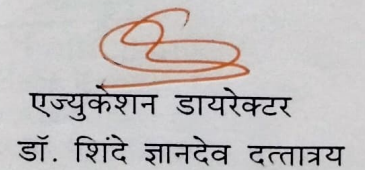 एज्युकेशन डायरेक्टर
डॉ. शिंदे ज्ञानदेव दत्तात्रय